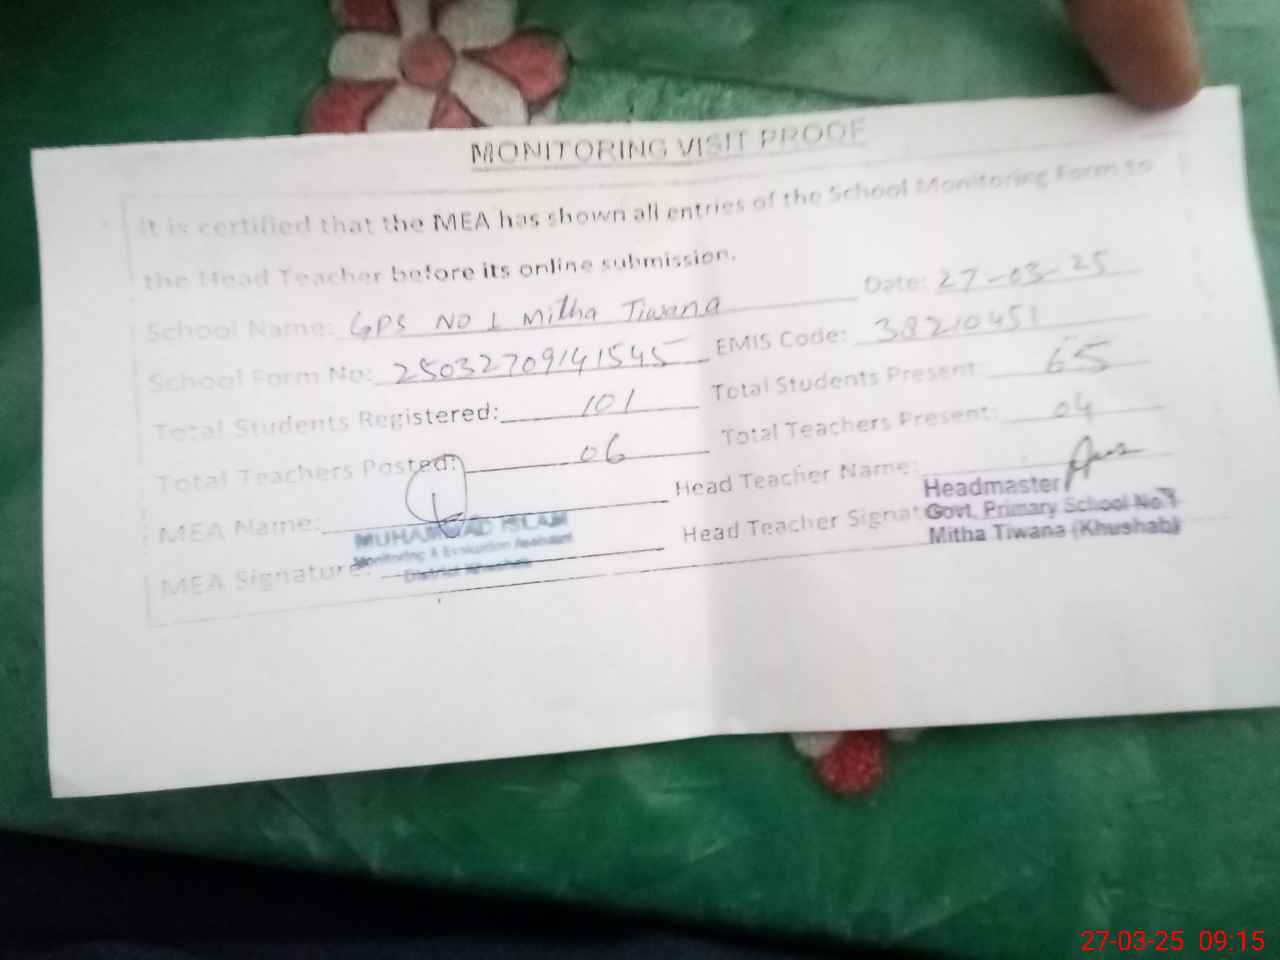 MONITORING VISIT PROOF
It is certified that the MEA has shown all entries of the School Monitoring Form to
the Head Teacher before its online submission.
School Name: GPS NO 1 Mitha Tiwana Date: 27-03-25
School Form No: 25032709141545 EMIS Code: 38210451
Total Students Registered: 101 Total Students Present: 65
Total Teachers Posted: 06 Total Teachers Present: 04
MEA Name: Head Teacher Name:
MUHAMMAD ISLAM
Monitoring & Evaluation Assistant
District Khushab
MEA Signature: Head Teacher Signat
Headmaster
Govt. Primary School No.1
Mitha Tiwana (Khushab)
27-03-25 09:15